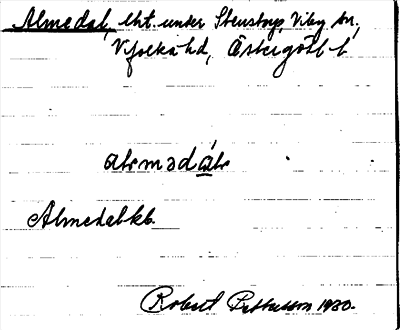 Almedal, lht. under Stenstorp, Viby sn,
Vifolka hd, Östergötl. l.
almədál
Almedal kb.
Robert Pettersson 1930.